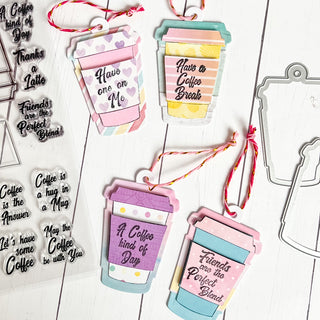 A Coffee
kind of
Day
Thanks
a
Latte
Friends
are the
Perfect
Blend
Coffee
is the
Answer
Coffee is
a hug in
a Mug
Let's have
some
Coffee
May the
Coffee
be with You
Have
one on
Me
Have a
Coffee
Break
A Coffee
kind of
Day
Friends
are the
Perfect
Blend